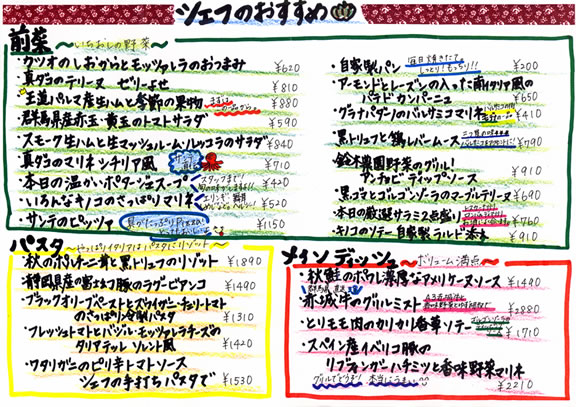 シェフのおすすめ
前菜 〜いちおしの野菜〜
・カツオのしおからとモッツァレラのおつまみ ¥620
・真ダコのテリーヌ ゼリーよせ ¥810
・王道パルマ産生ハムと季節の果物 ¥880
・群馬県産赤玉・黄玉のトマトサラダ ¥590
・スモーク生ハムと生マッシュルーム・ルッコラのサラダ ¥840
・真ダコのマリネ シチリア風 ¥710
・本日の温かいポタージュスープ ¥420
・いろんなキノコのさっぱりマリネ ¥520
・サンテのピッツァ ¥1150
・自家製パン 毎日焼きたて しっとり!もっちり!! ¥200
・アーモンドとレーズンの入った南イタリア風の
パテドカンパーニュ ¥650
・グラナパダーノのバルサミコマリネ ¥410
・黒トリュフと鶏レバームース ¥790
・鈴木農園野菜のグリル!
アンチョビディップソース ¥910
・黒ゴマとゴルゴンゾーラのマーブルテリーヌ ¥690
・本日の厳選サラミ2点盛り ¥760
・キノコのソテー自家製ラルド添え ¥910
パスタ 〜やっぱりイタリアはパスタにリゾット〜
・秋のポルチーニ茸と黒トリュフのリゾット ¥1890
・静岡県産の富士幻豚のラグービアンコ ¥1490
・ブラックオリーブペーストとズワイガニ・チェリトマト
のさっぱり冷製パスタ ¥1310
・フレッシュトマトとバジル・モッツァレラチーズの
タリアテッレ ソレント風 ¥1420
・ワタリガニのピリ辛トマトソース
シェフの手打ちパスタで ¥1530
メインディッシュ 〜ボリューム満点〜
・秋鮭のポワレ濃厚なアメリケーヌソース ¥1490
・赤城牛のグリルミスト ¥2880
・とりモモ肉のカリカリ香草ソテー ¥1710
・スペイン産イベリコ豚の
リブフィンガーハチミツと香味野菜マリネ ¥2210
グリルでどうぞ! 本当にうまい